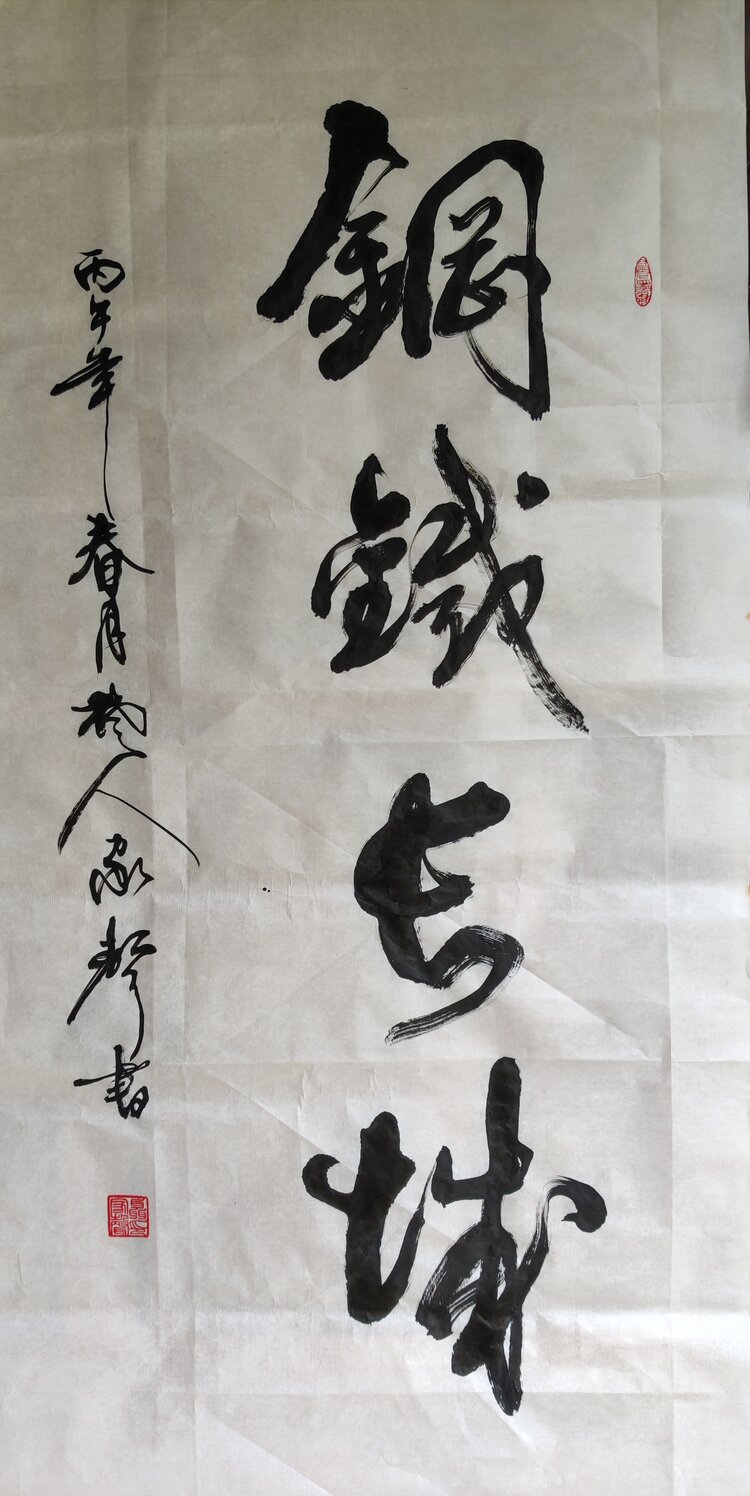 鋼鐵長城
丙午年春月楚人家聲書